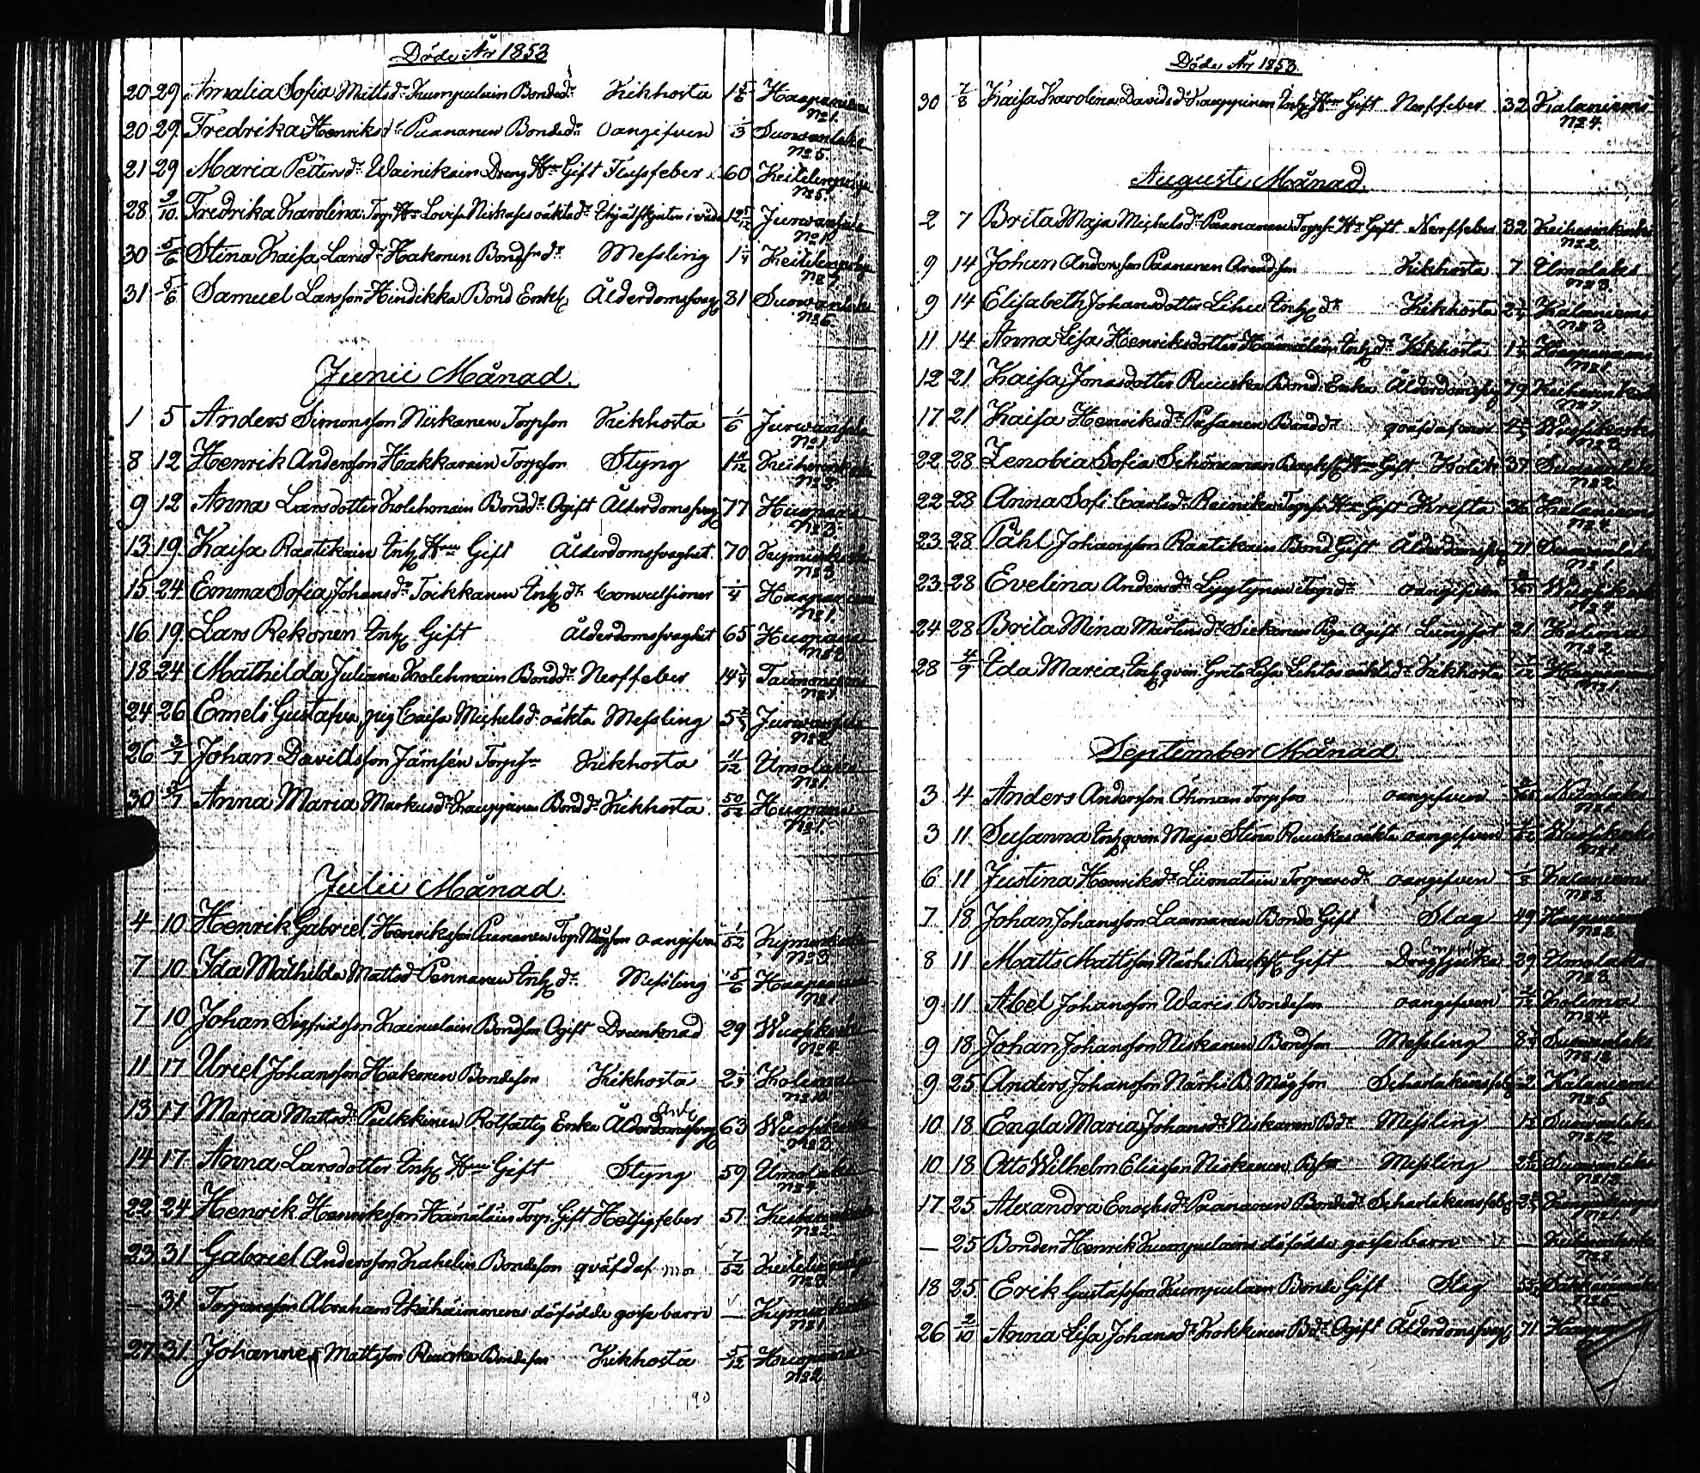 Döde År 1853
20 29 Amalia Sofia Mattsdr Kumpulain Bondedr Kikhosta Haapaniemi
No 1.
20 29 Fredrika Henriksdr Paananen Bondedr oangifven 1/3 Suovanlaks
No 5.
21 29 Maria Pettersdr Wainikain Dreng Hru Gift Flussfeber 60 Keitelepohja
No 5.
28 3/10 Fredrika Karolina Lovisa Niskases oäkta dr 12 5/12 Jurvansalo
No 1.
30 5/6 Stina Kaisa Larsdr Hakonen Bondss dr Messling 1 1/4 Keitelepohja
31 5/6 Samuel Larsson Hindikka Bond Enkl Ålderdomssvag 81 Suovanlaks
No 5.
Junii Månad.
1 5 Anders Simonsson Niskanen Torpson Kikhosta 1/6 Jurvansalo
No 1.
8 12 Henrik Andersson Hakkarain Torpson Styng 1 11/12 Keihärinkoski
No 3.
9 12 Anna Larsdotter Kolehmain Bonddr Ogift Ålderdomssvag 77 Huopana
No 3.
13 19 Kaisa Rautikain Inh Hru Gift Ålderdomssvaghet 70 Kymönkoski
No 3
15 24 Emma Sofia Johansdr Toikkanen Inh dr Convulsioner 1/4 Haapaniemi
No 1.
16 19 Lars Rekonen Inh Gift Ålderdomssvaghet 65 Huopana
No 3
18 24 Mathilda Juliana Kolehmain Bonddr Nerffeber 14 Taimoniemi
No 1.
24 26 Emeli Gustafva pig Caisa Michelsdr oäkta Messling 5 Jurvansalo
No 2.
26 3/7 Johan Davidsson Jämsén Torps Kikhosta 11/12 Ilmolaks
No 1.
30 3/7 Anna Maria Markusdr Kauppinen Bonddr Kikhosta 50/52 Huopana
No 1.
Julii Månad.
4 10 Henrik Gabriel Henriksson Paananen Torp Mågson oangifven 1/52 Kymönkoski
No 3.
7 10 Ida Mathilda Mattsdr Pennanen Inh dr Messling 5/6 Haapaniemi
No 1
7 10 Johan Sigfridsson Kainulain Bondson Ogift Drunknad 29 Wuoskoski
No 4.
11 17 Uriel Johansson Hakonen Bondeson Kikhosta 2 1/3 Kolima
No 10.
13 17 Maria Mattsdr Pulkkinen Rotfattig Enka Ålderdomssvag 63 Wuoskoski
No 2.
14 17 Anna Larsdotter Inh Hru Gift Styng 59 Ilmolaks
No 4.
22 24 Henrik Henriksson Hämäläin Torp Gift Hetsigfeber 51 Keihärinkoski
No 2.
23 31 Gabriel Andersson Kahelin Bondeson qväfd af mor 7/52 Keitelepohja
No 3.
— 31 Torparesson Abraham Ihahäimonens dödfödde gosse barn — Kymönkoski
No 1.
27 31 Johannes Mattsson Ruuska Bondeson Kikhosta 5/12 Huopana
No 2.
190
Döde År 1853.
30 7/8 Kaisa Karolina Davidsdr Kauppinen Inh Hru Gift Nerffeber 32 Kalaniemi
No 4.
Augusti Månad.
2 7 Brita Maja Michelsdr Paananen Torps Hru Gift Nerffeber 32 Keihärinkoski
No 2.
9 14 Johan Andersson Paananen Kikhosta 7 Ilmolaks
No 3.
9 14 Elisabeth Johansdotter Lihu Inh dr Kikhosta Kalaniemi
No 3.
11 14 Anna Lisa Henriksdotter Hämäläin Inh dr Kikhosta Haapaniemi
No 1.
12 21 Kaisa Jonasdotter Ruuska Bond Enka Ålderdomssvag 79 Keihärinkoski
No 7.
17 21 Kaisa Henriksdr Pasanen Bonddr qväfd af mor Wuoskoski
No 3
22 28 Zenobia Sofia Schöneman Hru Gift Kolik 37 Suovanlaks
No 2.
22 28 Anna Sofi Carlsdr Reinika Torps Hru Gift Krefta 36 Kalaniemi
No 4.
23 28 Påhl Johansson Rautikain Bond Gift Ålderdomssvag 71 Suovanlaks
No 1.
23 28 Evelina Andersdr Lyytynen Torpdr oangifven Wuoskoski
No 4.
24 28 Brita Mina Mårtensdr Siekonen Piga Ogift Lungsot 21 Kolima
No 2.
28 4/9 Ida Maria Inh qvin Greta Lisa Lehtos oäkta dr Kikhosta 7/12 Haapaniemi
No 1.
September Månad.
3 4 Anders Andersson Öhman Torpson oangifven Ilmolaks
No 1.
3 11 Susanna Inh qvin Maja Stina Ruuskas oäkta oangifven Wuoskoski
No 1.
6 11 Justina Henriksdr Liimatain Torpare dr oangifven 1/8 Kalaniemi
No 3.
7 18 Johan Johansson Laamanen Bonde Gift Slag 49 Haapaniemi
No 2.
8 11 Matts Mattsson Närhi Gift 29 Ilmolaks
No 3.
9 11 Abel Johansson Wares Bondeson oangifven Kolima
No 4.
9 18 Johan Johansson Niskanen Bondson Messling 8 Suovanlaks
No 12.
9 25 Anders Johansson Närhi B Mågson Scharlakansfeb 2 Kalaniemi
No 5.
10 18 Engla Maria Johansdr Niskanen Bdr Messling Suovanlaks
No 12.
10 18 Otto Wilhelm Eliasson Niskanen Messling Suovanlaks
No 12.
17 25 Alexandra Enochsdr Paananen Bondedr Scharlakansfeb
No 1.
— 25 Bonden Henrik Kumpulains dödfödde gosse barn — Keihärinkoski
No 8.
18 25 Erik Gustafsson Kumpulain Bonde Gift Slag
No 5.
26 2/10 Anna Lisa Johansdr Kokkinen Bdr Ogift Ålderdomssvag 71